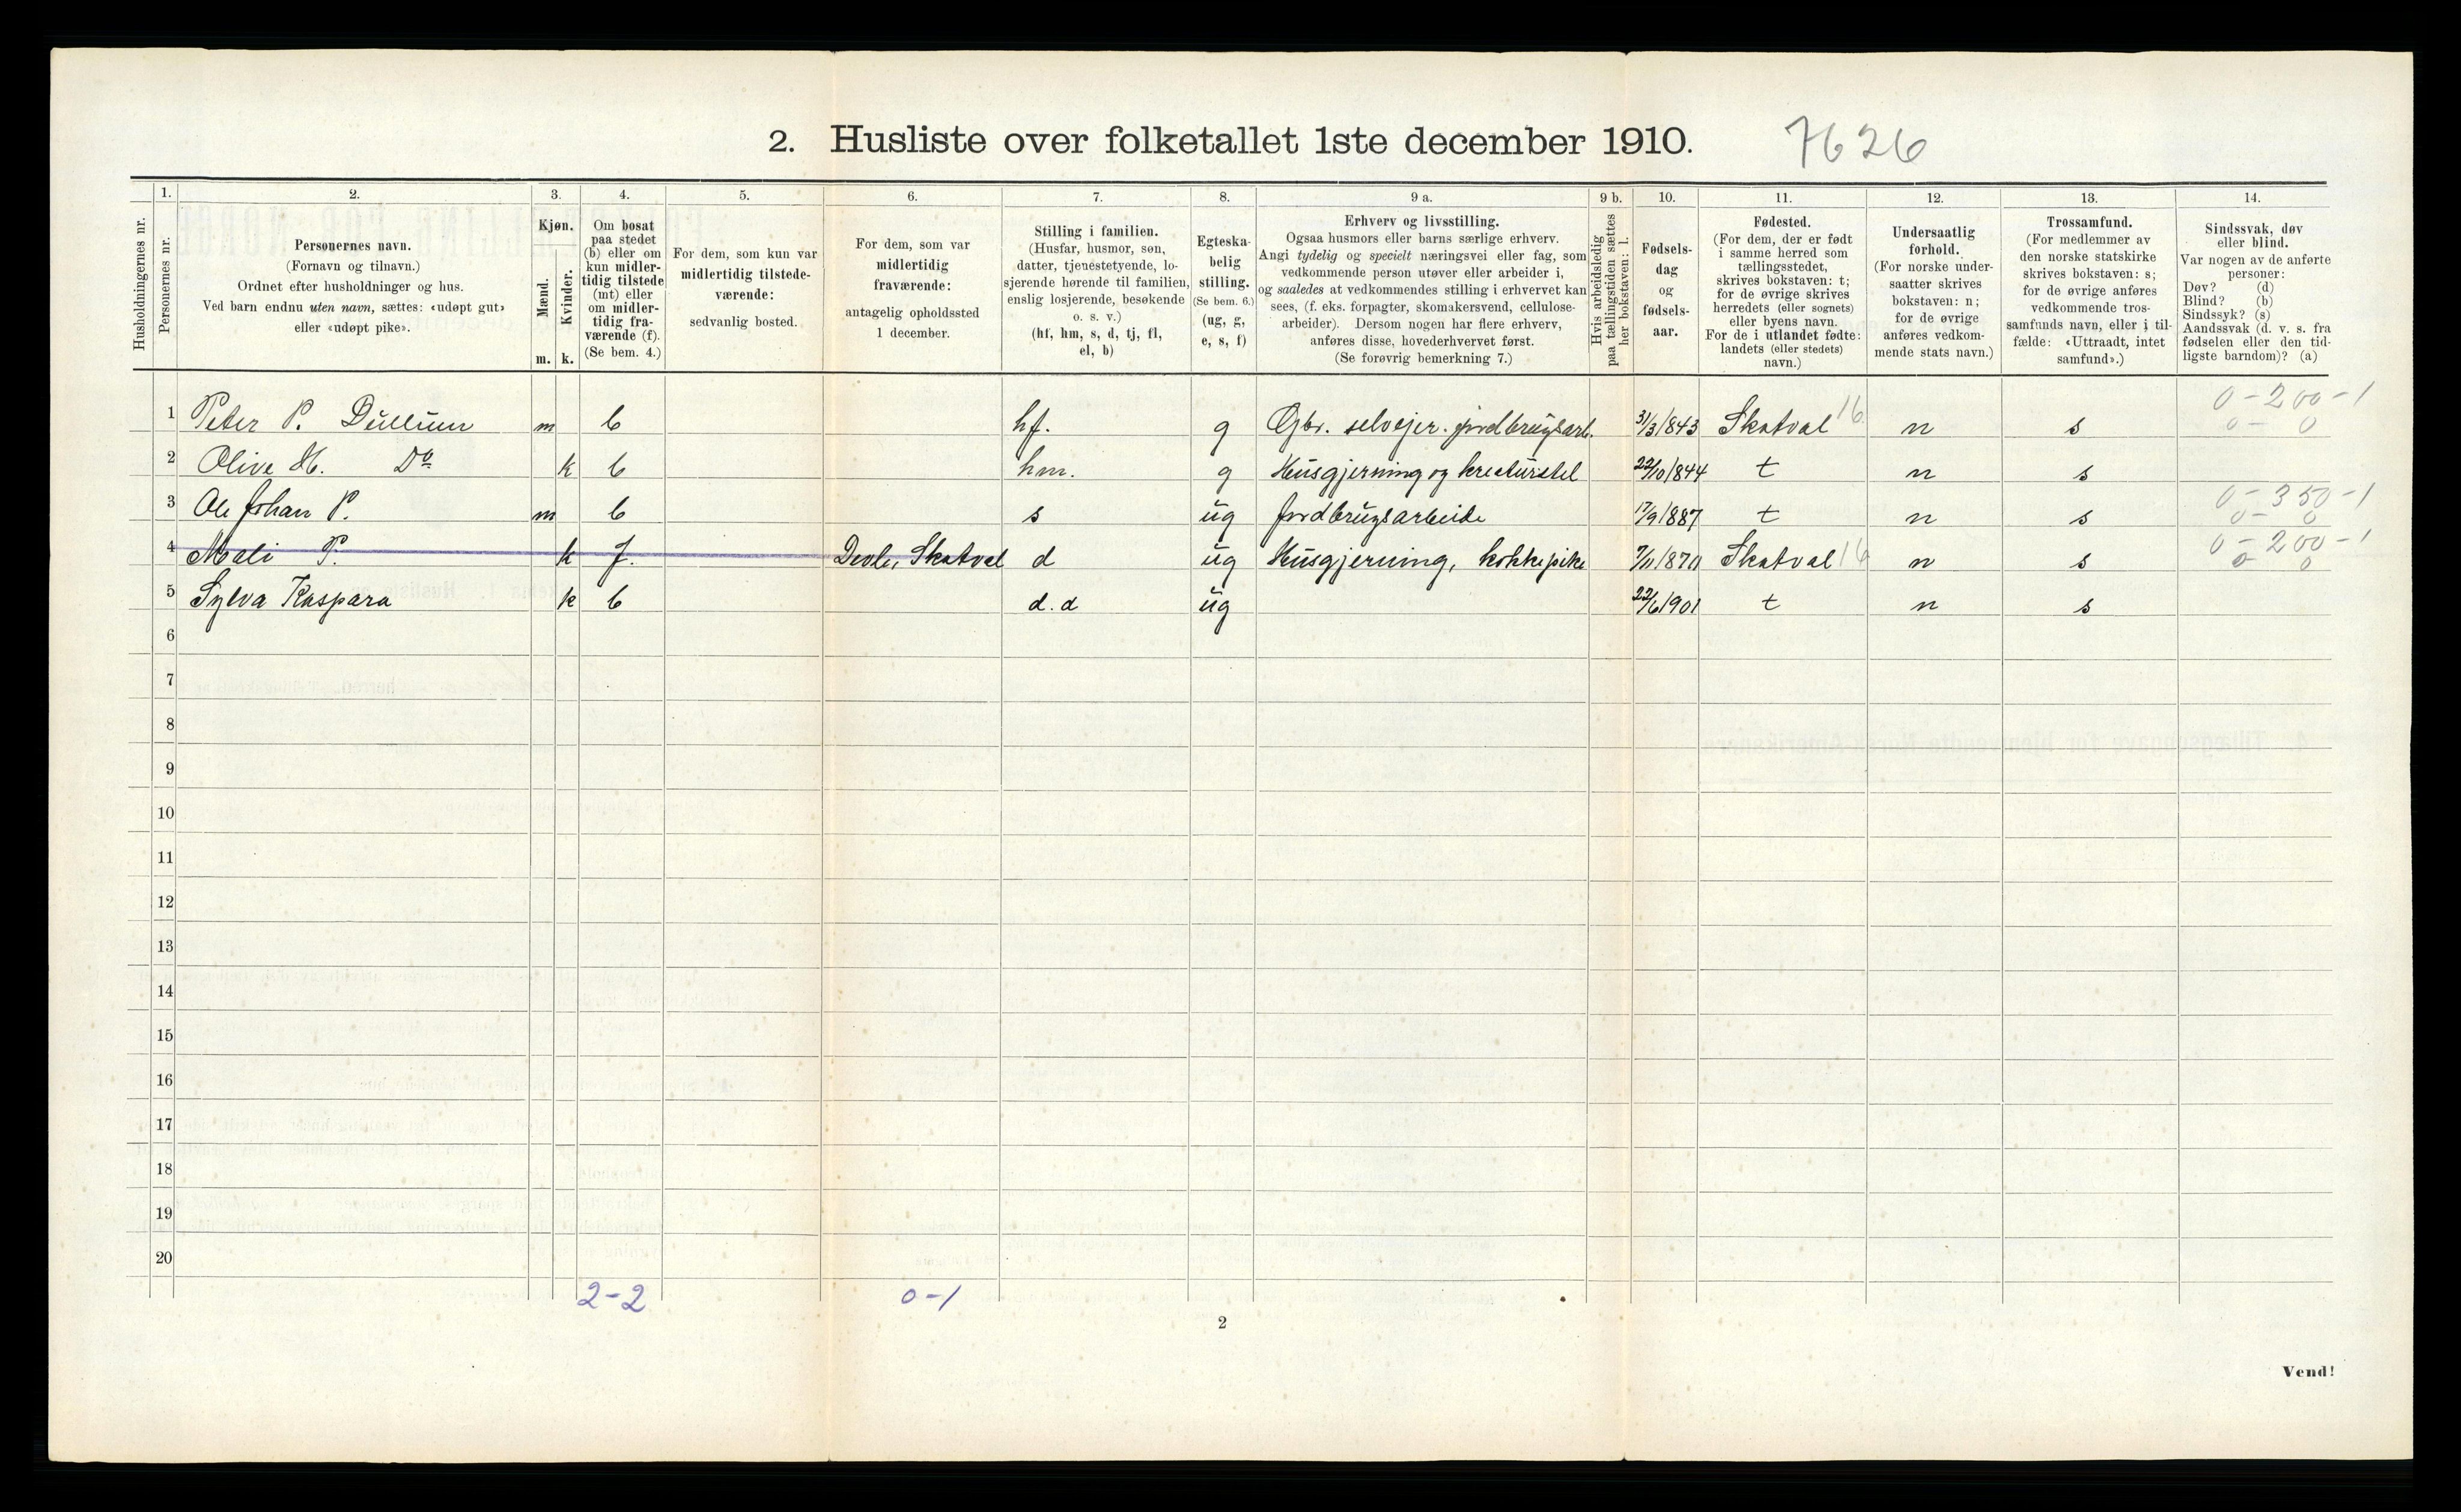 2. Husliste over folketallet 1ste december 1910. 7626
1. 2. 3. 4. 5. 6. 7. 8. 9 a. 9 b. 10. 11. 12. 13. 14.
Husholdningernes nr.
Personernes nr.
Personernes navn.
(Fornavn og tilnavn.)
Ordnet efter husholdninger og hus.
Ved barn endnu uten navn, sættes: «udøpt gut»
eller «udøpt pike».
Kjøn.
Mænd.
Kvinder.
m. k.
Om bosat
paa stedet
(b) eller om
kun midler-
tidig tilstede
(mt) eller
om midler-
tidig fra-
værende (f).
(Se bem. 4.)
For dem, som kun var
midlertidig tilstede-
værende:
sedvanlig bosted.
For dem, som var
midlertidig
fraværende:
antagelig opholdssted
1 december.
Stilling i familien.
(Husfar, husmor, søn,
datter, tjenestetyende, lo-
sjerende hørende til familien,
enslig losjerende, besøkende
o. s. v.)
(hf, hm, s, d, tj, fl,
el, b)
Egteska-
belig
stilling.
(Se bem. 6.)
(ug, g,
e, s, f)
Erhverv og livsstilling.
Ogsaa husmors eller barns særlige erhverv.
Angi tydelig og specielt næringsvei eller fag, som
vedkommende person utøver eller arbeider i,
og saaledes at vedkommendes stilling i erhvervet kan
sees, (f. eks. forpagter, skomakersvend, cellulose-
arbeider). Dersom nogen har flere erhverv,
anføres disse, hovederhvervet først.
(Se forøvrig bemerkning 7.)
Hvis arbeidsledig
paa tællingstiden sættes
her bokstaven: l.
Fødsels-
dag
og
fødsels-
aar.
Fødested.
(For dem, der er født
i samme herred som
tællingsstedet,
skrives bokstaven: t;
for de øvrige skrives
herredets (eller sognets)
eller byens navn.
For de i utlandet fødte:
landets (eller stedets)
navn.)
Undersaatlig
forhold.
(For norske under-
saatter skrives
bokstaven: n;
for de øvrige
anføres vedkom-
mende stats navn.)
Trossamfund.
(For medlemmer av
den norske statskirke
skrives bokstaven: s;
for de øvrige anføres
vedkommende tros-
samfunds navn, eller i til-
fælde: «Uttraadt, intet
samfund».)
Sindssvak, døv
eller blind.
Var nogen av de anførte
personer:
Døv? (d)
Blind? (b)
Sindssyk? (s)
Aandssvak (d. v. s. fra
fødselen eller den tid-
ligste barndom)? (a)
0-200-1
1 Peter P. Dullum m b hf. g Gbr. selvejer. jordbrugsarb. 31/3/843 Skatval 16 n s 0- 0
2 Olive H. Do k b hm. g Husgjerning og kreaturstel 22/10/844 t n s
0-350-1
3 Ole Johan P. m b s ug Jordbrugsarbeide 17/9/887 t n s 0- 0
0-200-1
4 Mali P. k f. Devle, Skatval d ug Husgjerning, kokkepike 7/11/870 Skatval 16 n s 0- 0
5 Sylva Kaspara k b d.d ug 22/6/901 t n s
6
7
8
9
10
11
12
13
14
15
16
17
18
19
20
2-2 0-1
2
Vend!